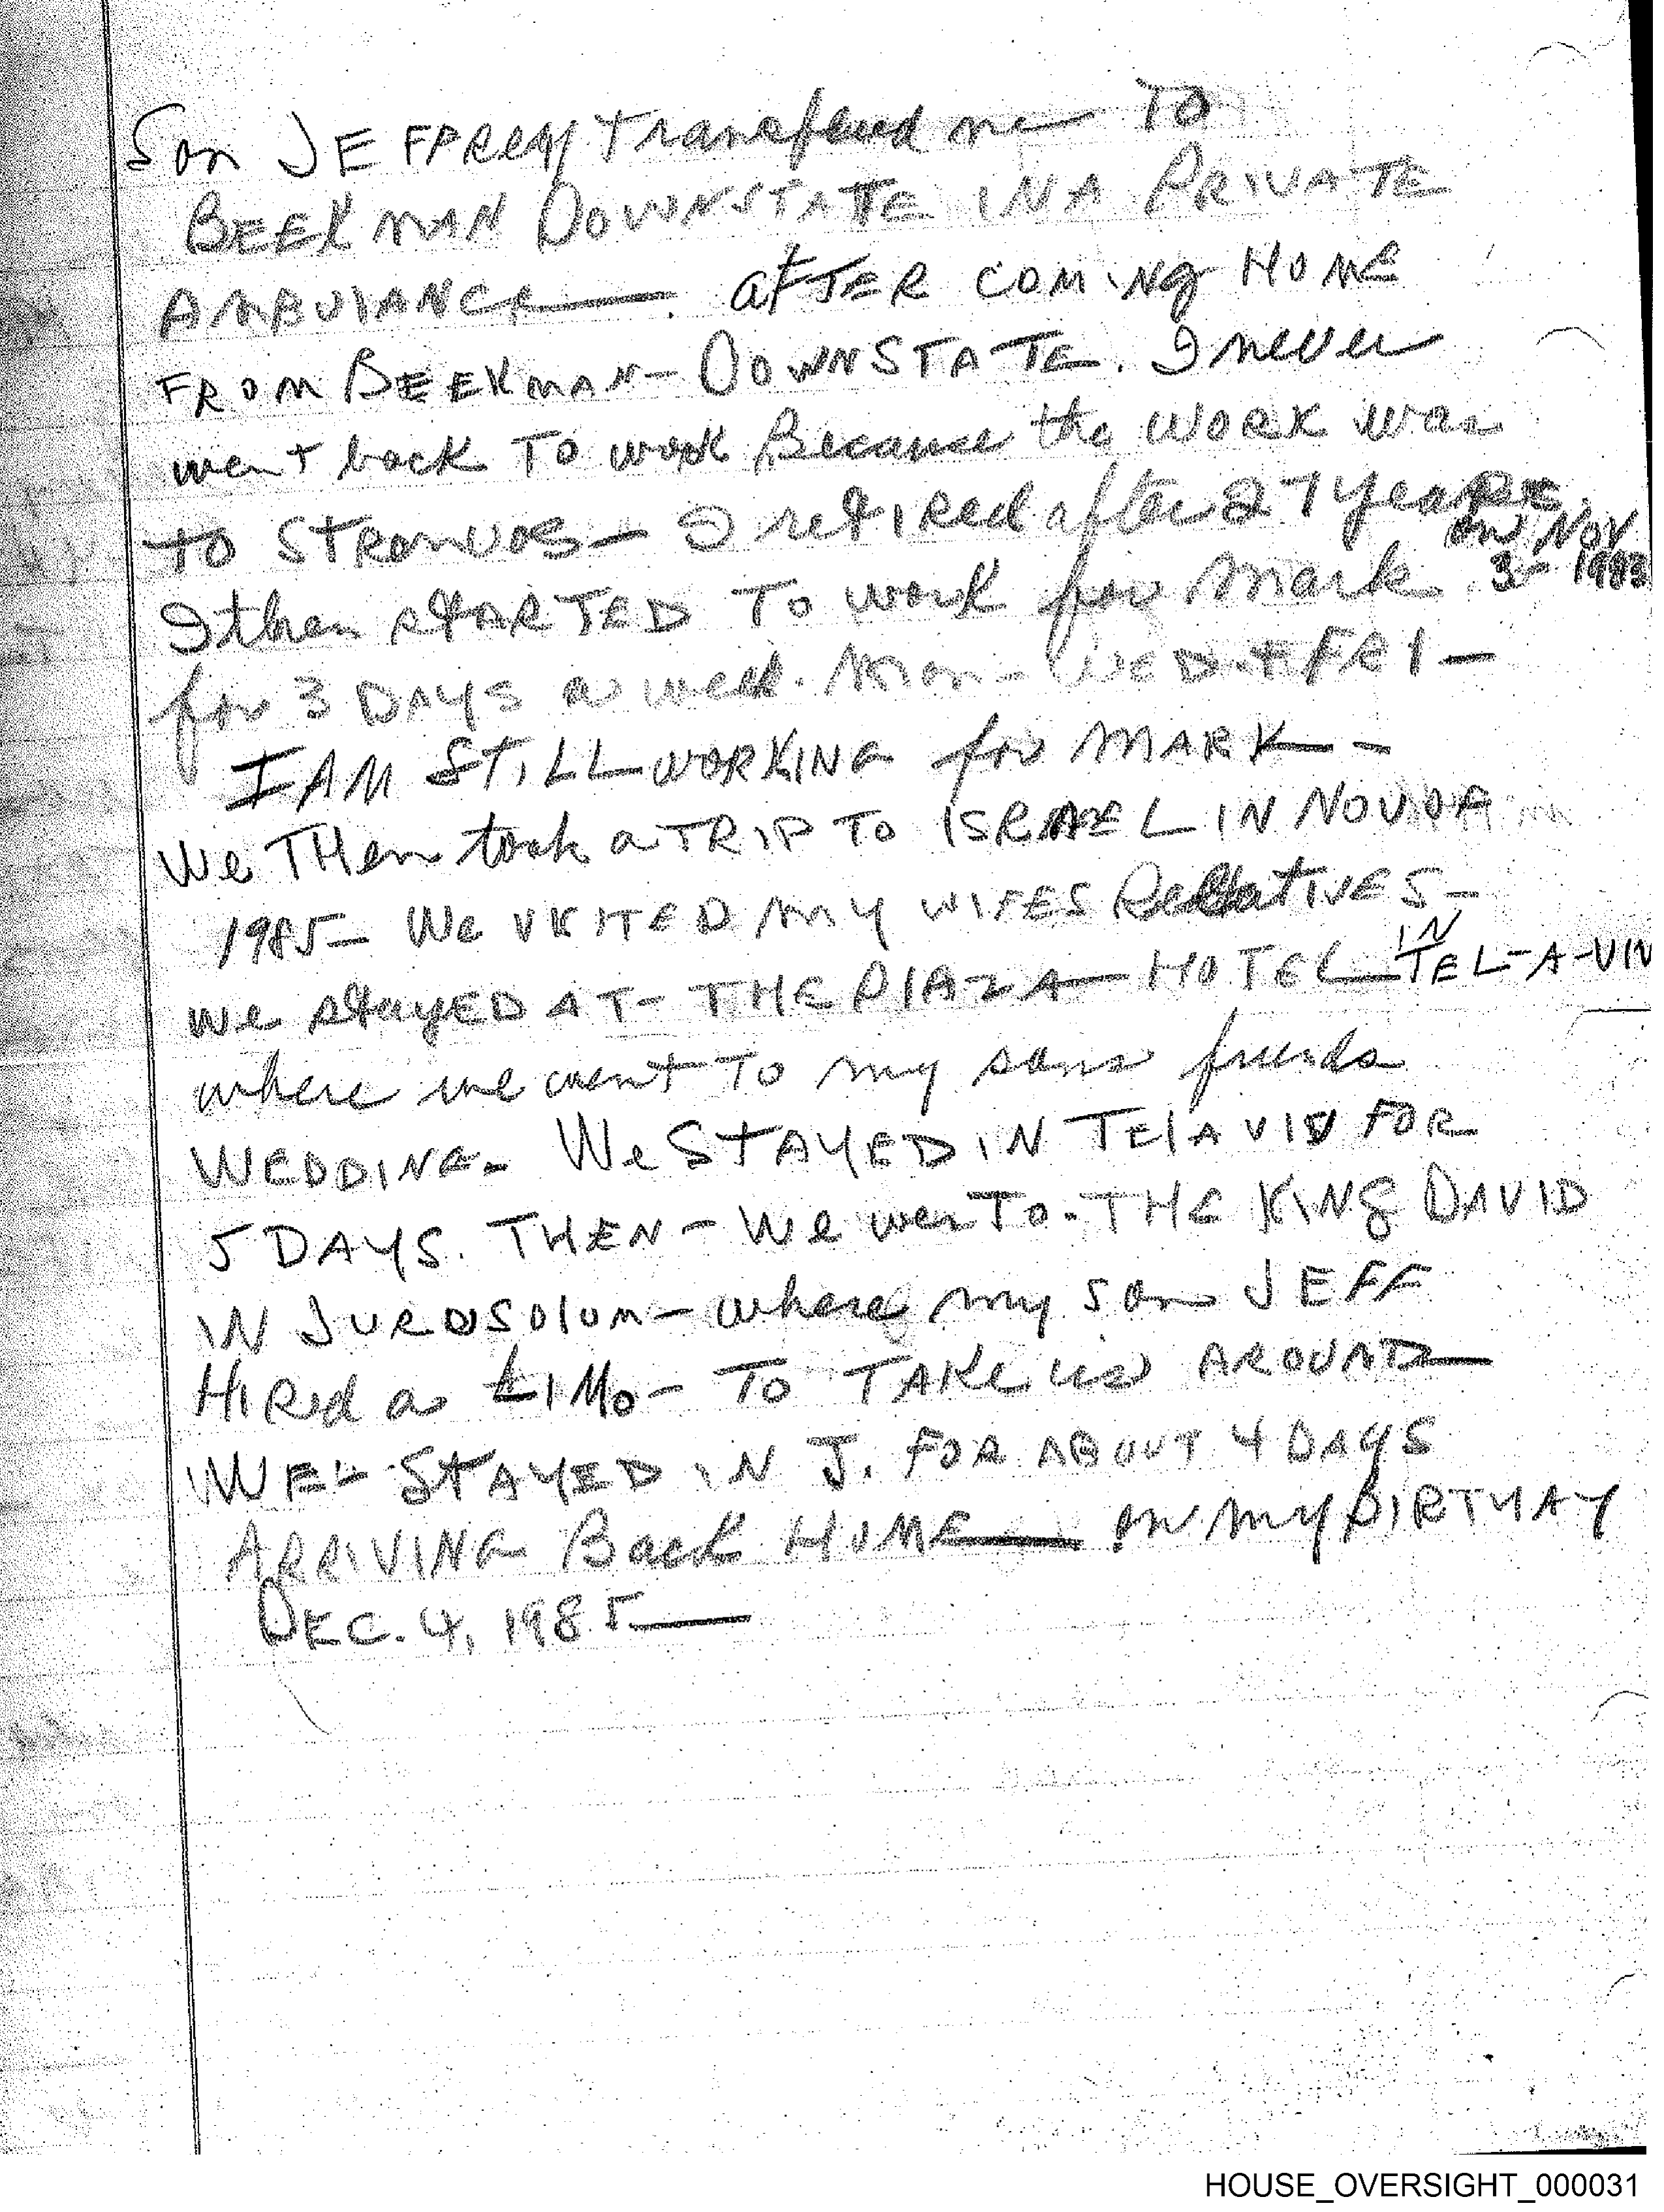 Son JEFFREY transfered me TO
BEEKMAN DOWNSTATE IN A PRIVATE
AMBULANCE — . AFTER COMING HOME
FROM BEEKMAN - DOWNSTATE. I never
went back TO work Because the WORK was
TO STRONUOS — I retired after 27 years
on NOV
3 - 1983
I then STARTED TO work for Mark
for 3 DAYS a week. Mon - WED + FRI —
I AM STILL WORKING for MARK - -
We THen took a TRIP TO ISRAEL IN NOV OF
1985 — We VISITED MY WIFES RELATIVES —
IN
we stayED AT - THE PLAZA — HOTEL — TEL-A-VIV
where we went TO my sons friends
WEDDING. We STAYED IN TEL AVIV FOR
5 DAYS. THEN - We wen TO - THE KING DAVID
IN JUROSOLUM — where my son JEFF
HIRed a LIMO - TO TAKE us AROUND —
WE - STAYED IN J. FOR ABOUT 4 DAYS
ARRIVING Back HOME — ON my BIRTHAY
DEC. 4, 1985 —
HOUSE_OVERSIGHT_000031